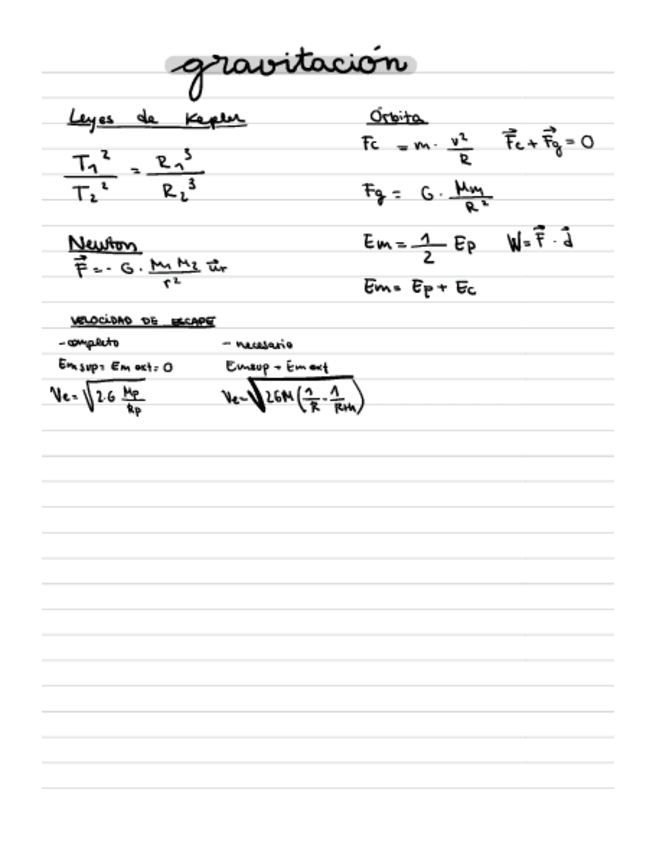 gravitación
Leyes de Kepler
T₁²/T₂² = R₁³/R₂³
Newton
F⃗ = - G · M₁ M₂/r² u⃗r
Órbita
Fc = m · v²/R    F⃗c + F⃗g = 0
Fg = G · Mm/R²
Em = 1/2 Ep    W = F⃗ · d⃗
Em = Ep + Ec
VELOCIDAD DE ESCAPE
- completo
Em sup = Em ext = 0
Ve = √(2·G Mp/Rp)
- necesario
Emsup = Em ext
Ve = √(2GM (1/R - 1/R+h))